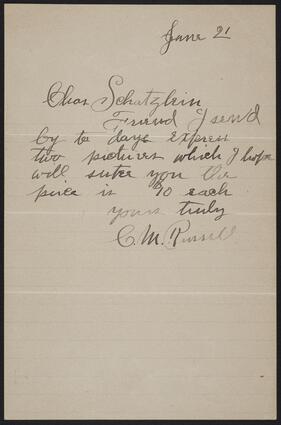 June 21
Chas Schatzlein
Friend I send
by to days express
two pictures which I hope
will sute you the
price is 70 each
yours truly
C. M. Russell